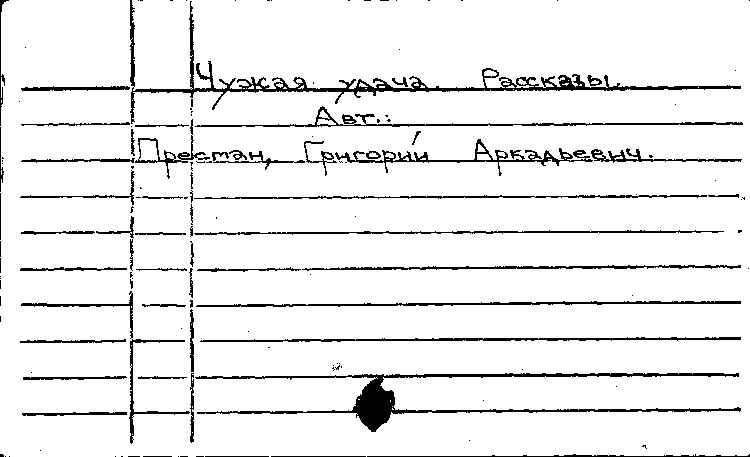 Чужая удача. Рассказы.
Авт.:
Пресман, Григорий Аркадьевич.